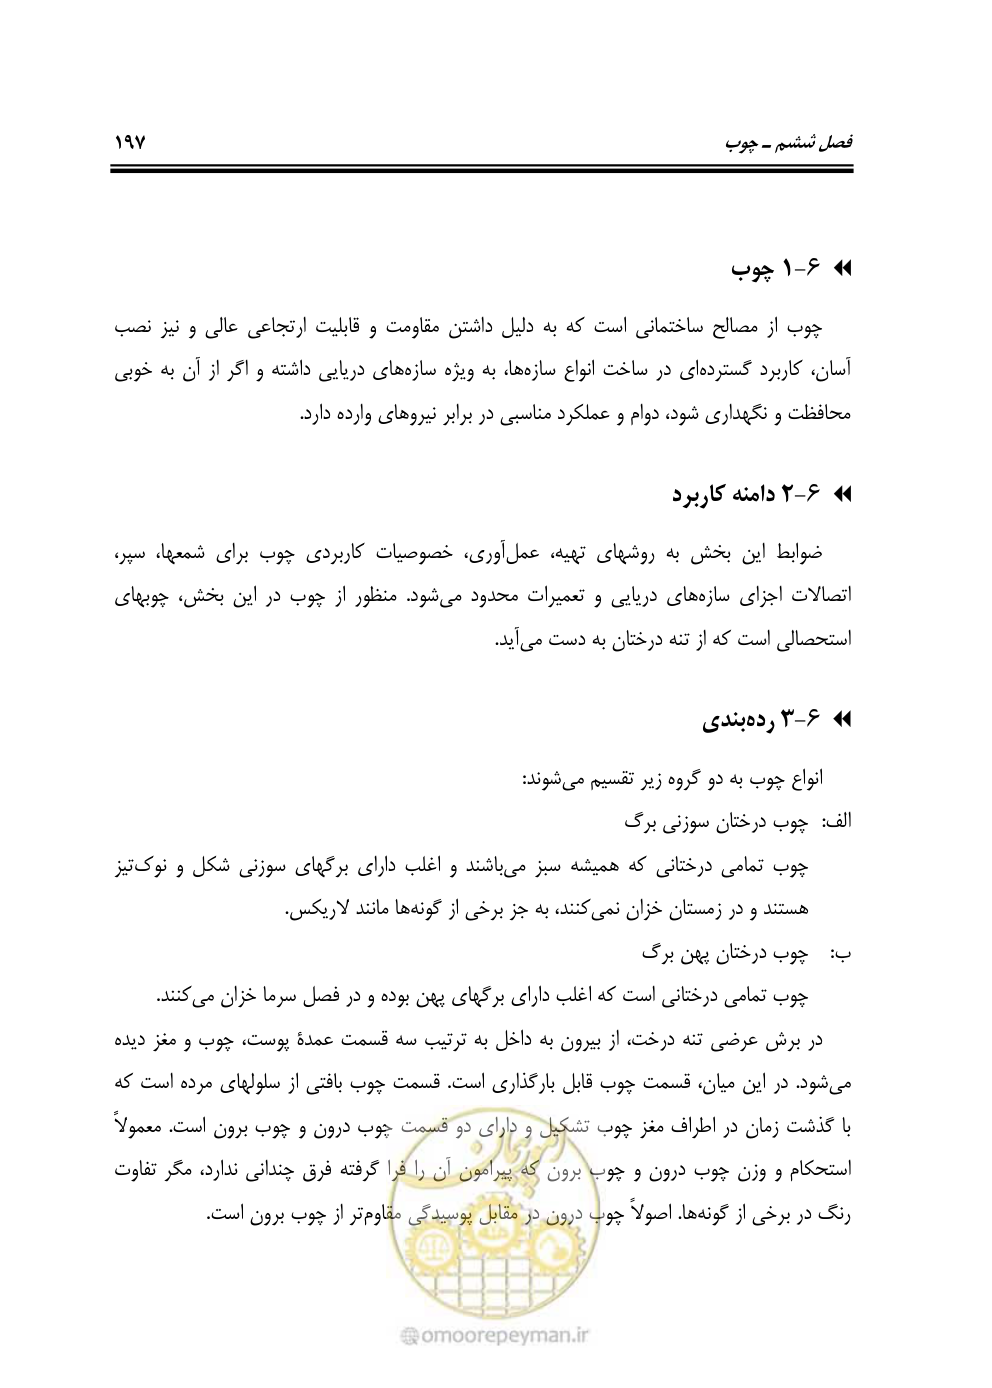 فصل ششم ـ چوب ۱۹۷
۶-۱ چوب
چوب از مصالح ساختمانی است که به دلیل داشتن مقاومت و قابلیت ارتجاعی عالی و نیز نصب
آسان، کاربرد گسترده‌ای در ساخت انواع سازه‌ها، به ویژه سازه‌های دریایی داشته و اگر از آن به خوبی
محافظت و نگهداری شود، دوام و عملکرد مناسبی در برابر نیروهای وارده دارد.
۶-۲ دامنه کاربرد
ضوابط این بخش به روشهای تهیه، عمل‌آوری، خصوصیات کاربردی چوب برای شمعها، سپر،
اتصالات اجزای سازه‌های دریایی و تعمیرات محدود می‌شود. منظور از چوب در این بخش، چوبهای
استحصالی است که از تنه درختان به دست می‌آید.
۶-۳ رده‌بندی
انواع چوب به دو گروه زیر تقسیم می‌شوند:
الف: چوب درختان سوزنی برگ
چوب تمامی درختانی که همیشه سبز می‌باشند و اغلب دارای برگهای سوزنی شکل و نوک‌تیز
هستند و در زمستان خزان نمی‌کنند، به جز برخی از گونه‌ها مانند لاریکس.
ب: چوب درختان پهن برگ
چوب تمامی درختانی است که اغلب دارای برگهای پهن بوده و در فصل سرما خزان می‌کنند.
در برش عرضی تنه درخت، از بیرون به داخل به ترتیب سه قسمت عمدهٔ پوست، چوب و مغز دیده
می‌شود. در این میان، قسمت چوب قابل بارگذاری است. قسمت چوب بافتی از سلولهای مرده است که
با گذشت زمان در اطراف مغز چوب تشکیل و دارای دو قسمت چوب درون و چوب برون است. معمولاً
استحکام و وزن چوب درون و چوب برون که پیرامون آن را فرا گرفته فرق چندانی ندارد، مگر تفاوت
رنگ در برخی از گونه‌ها. اصولاً چوب درون در مقابل پوسیدگی مقاوم‌تر از چوب برون است.
امور پیمان
@omoorepeyman.ir